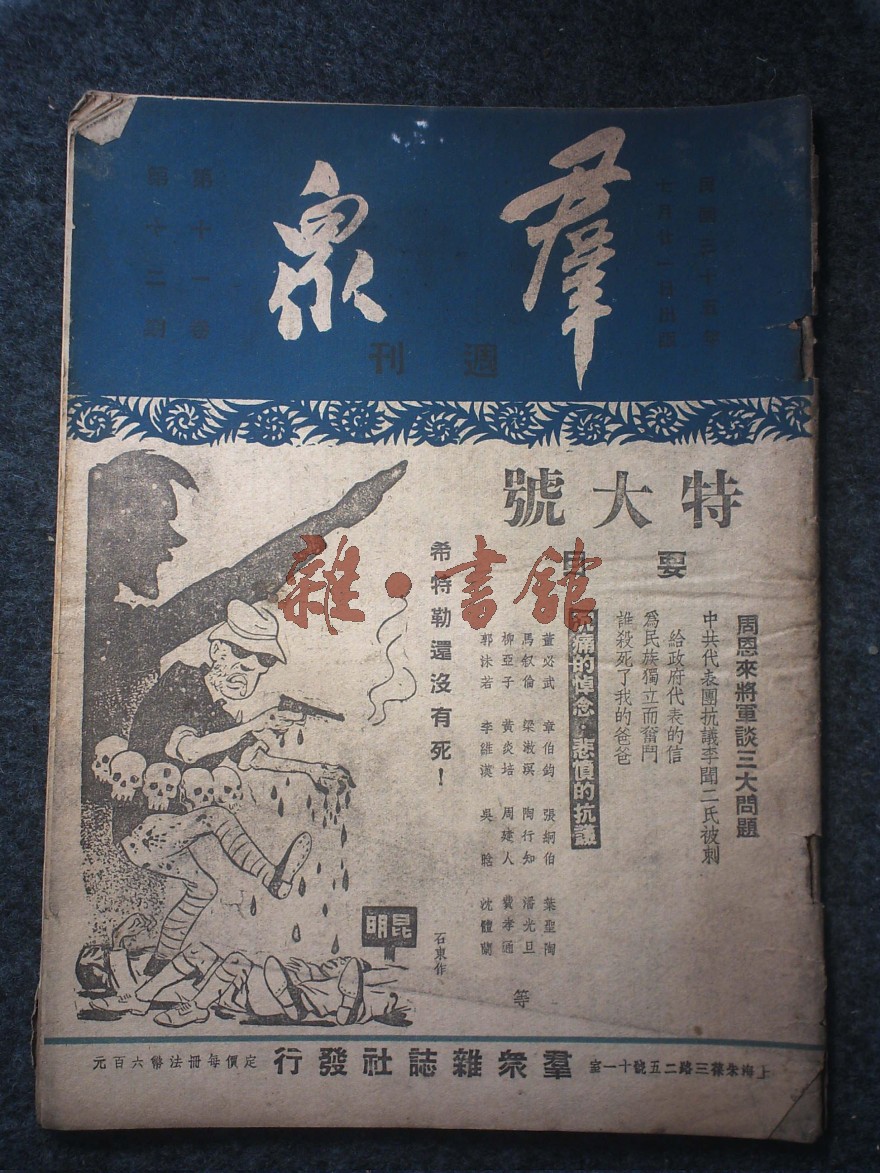 羣衆
週刊
民國三十五年
七月廿一日出版
第十一卷
第十二期
特大號
要目
周恩來將軍談三大問題
中共代表團抗議李聞二氏被刺
給政府代表的信
爲民族獨立而奮鬥
誰殺死了我的爸爸
沉痛的悼念·悲憤的抗議
董必武 章伯鈞 張絅伯 葉聖陶
馬叙倫 梁漱溟 陶行知 潘光旦
柳亞子 黃炎培 周建人 費孝通 等
郭沫若 李維漢 吳晗 沈體蘭
希特勒還沒有死！
石東作
昆明
上海朱葆三路二五號十一室
羣衆雜誌社發行
定價每冊法幣六百元
雜·書館